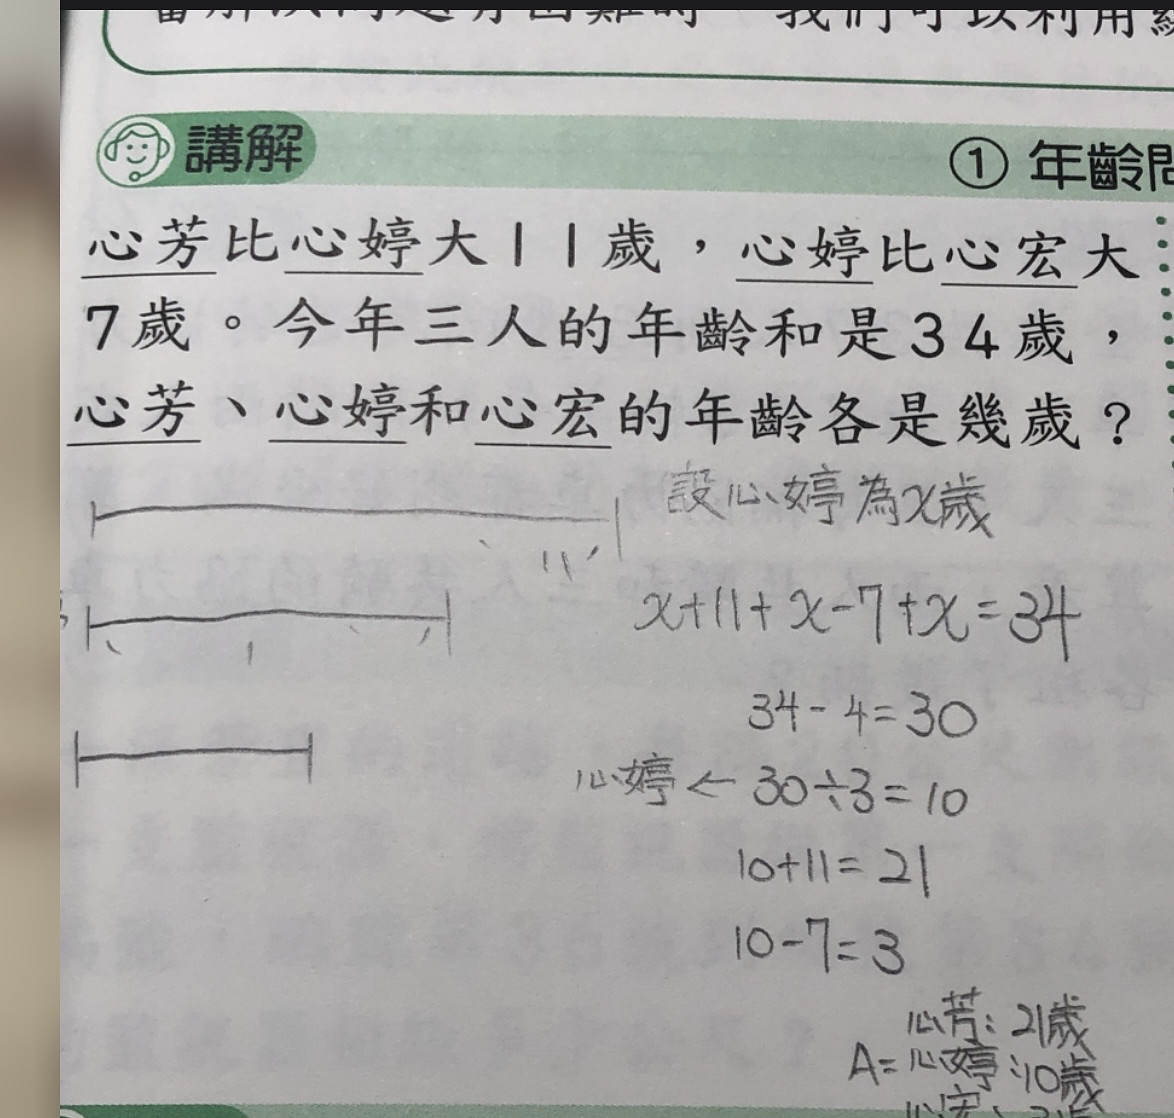 我們可以利用
講解
① 年齡
心芳比心婷大11歲,心婷比心宏大
7歲。今年三人的年齡和是34歲,
心芳、心婷和心宏的年齡各是幾歲?
設心婷為x歲
11
x+11+x-7+x=34
34-4=30
心婷←30÷3=10
10+11=21
10-7=3
心芳:21歲
A=心婷:10歲
心宏